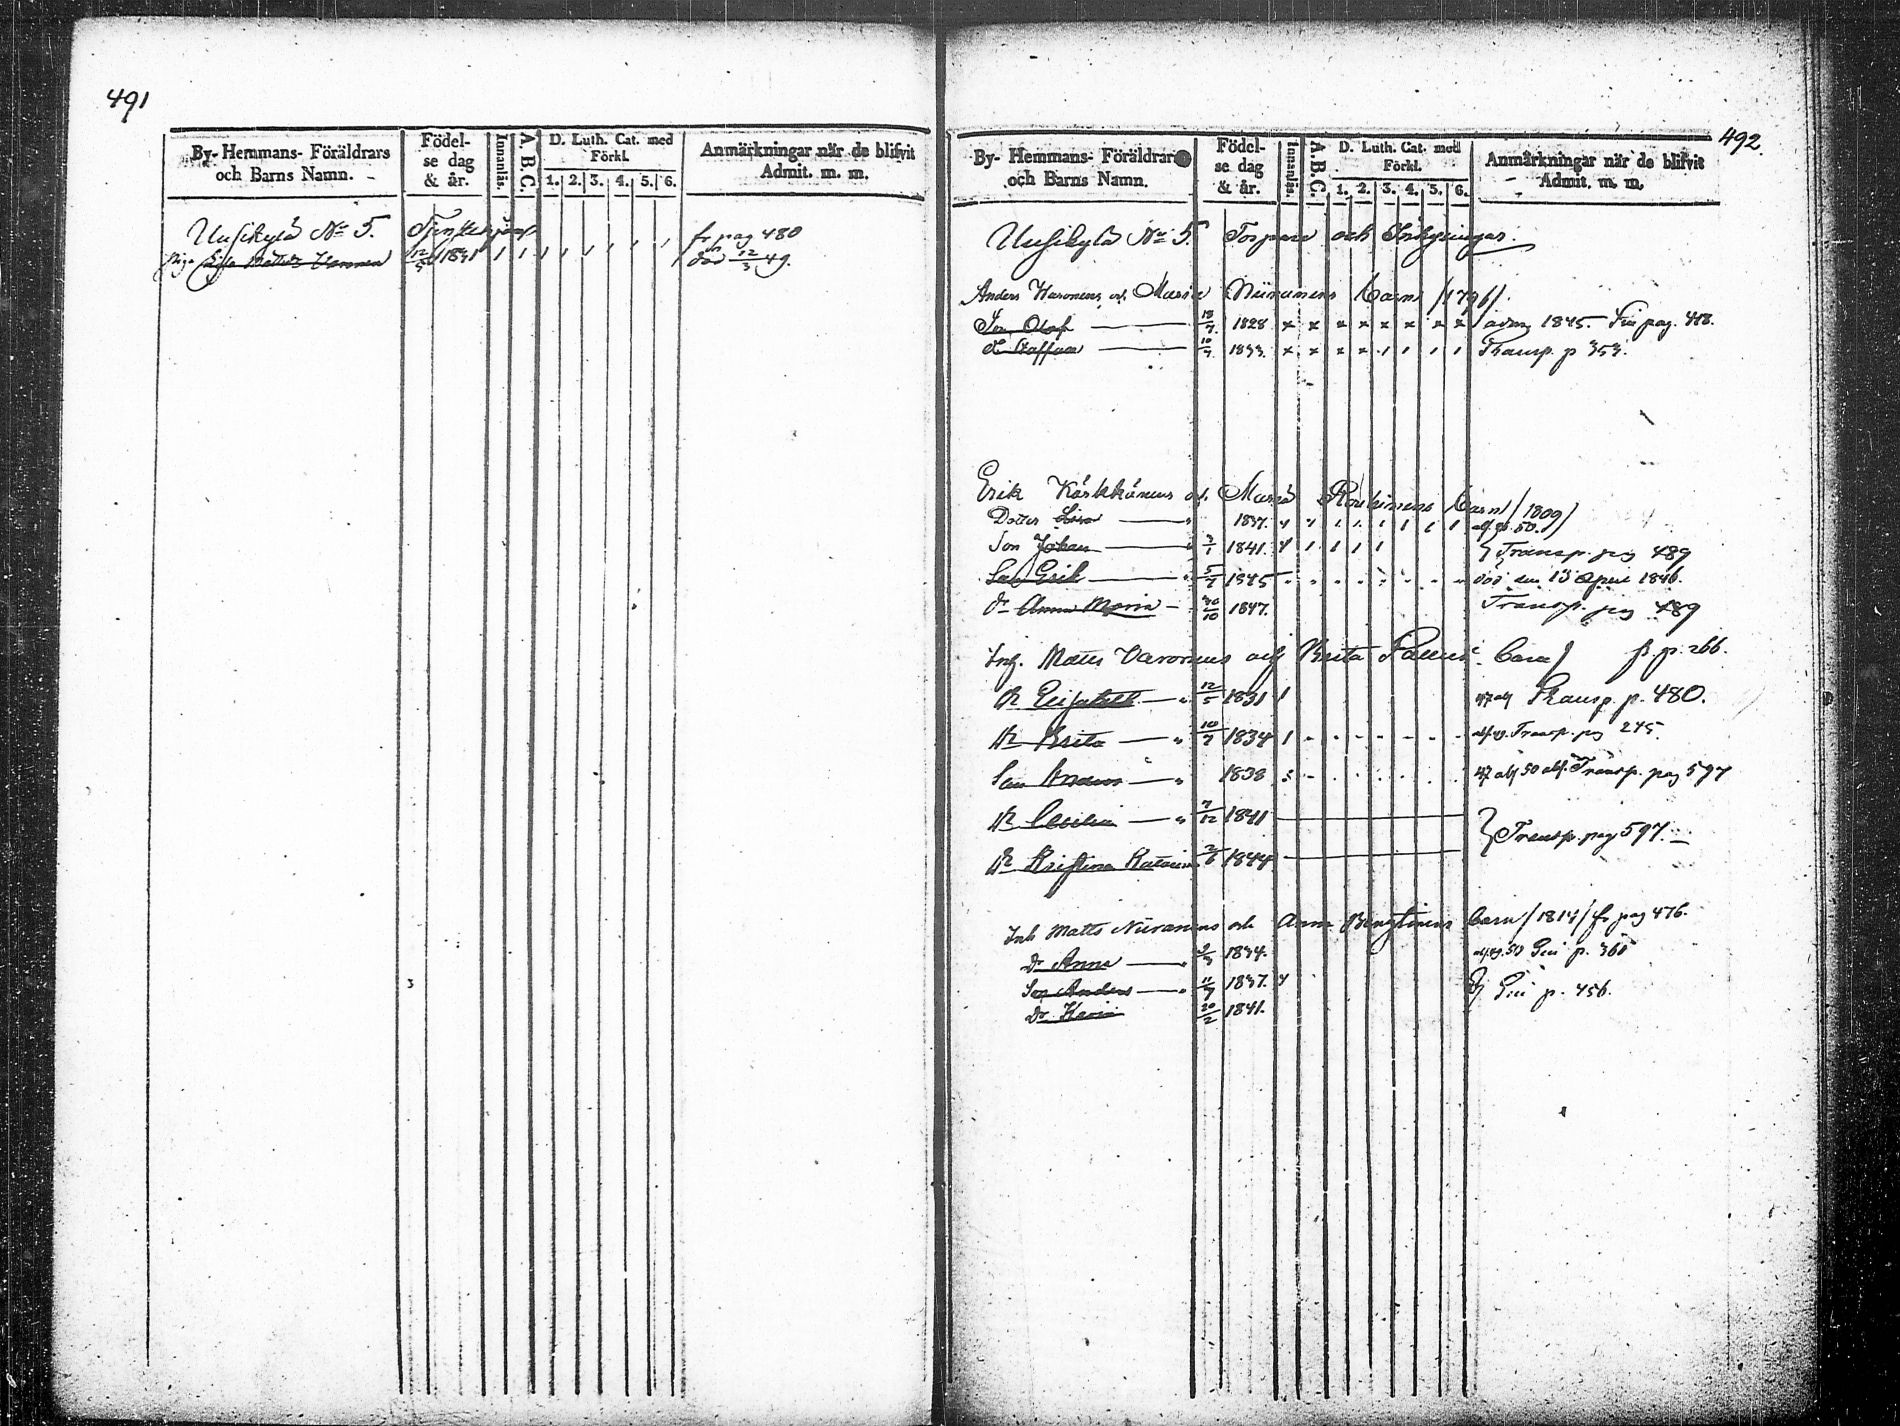 491
By- Hemmans- Föräldrars och Barns Namn.
Födel-se dag & år.
Innanläs.
A.B.C.
D. Luth. Cat. med Förkl.
1. 2. 3. 4. 5. 6.
Anmärkningar när de blifvit Admit. m. m.
Uusikylä No 5. Tjenstehjon
fr pag 480
Piga 12/5 1831 död 12/3 49.
492.
By- Hemmans- Föräldrar och Barns Namn.
Födel-se dag & år.
Innanläs.
A.B.C.
D. Luth. Cat. med Förkl.
1. 2. 3. 4. 5. 6.
Anmärkningar när de blifvit Admit. m. m.
Uusikylä No 5. Torpare och Inhysingar.
Anders Waronens och Maria Niiranens barn /1796/.
Son Olof 18/7 1828 x x x x x x x x adm 1845. pag. 418.
D. Staffan 10/7 1833 x x x x Transp. p 353.
Erik Kärkkänens och Maria barn /1809/
Dotter Lisa 1837.
Son Johan 2/1 1841. Transp. pag 489
Son Erik 5/7 1845 död den 13 April 1846.
Dr Anna Maria 30/10 1847. Transp. pag 489
Inh. Matts Varonens och Brita barn/ fr p. 266.
Dr Elisabet 12/5 1831 Transp. p. 480.
Dr Brita 10/7 1834 Transp. pag 245.
Son Anders 1838 Transp. pag 597
Dr Cecilia 7/12 1841
Transp. pag 597.
Dr Kristina Katarina 2/6 1844
Inh Matts Niiranens och Anna barn /1814/ fr pag 476.
Dr Anna 2/3 1834. p. 360
Son Anders 11/7 1837. p. 456.
Dr Karin 20/2 1841.